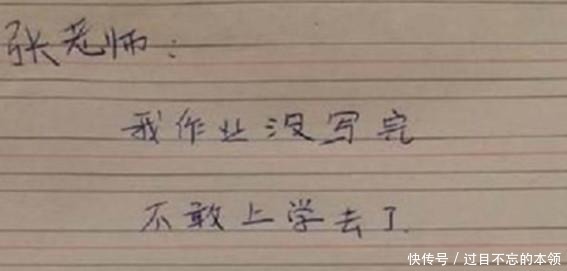 张老师:
我作业没写完
不敢上学去了.
快传号／过目不忘的本领